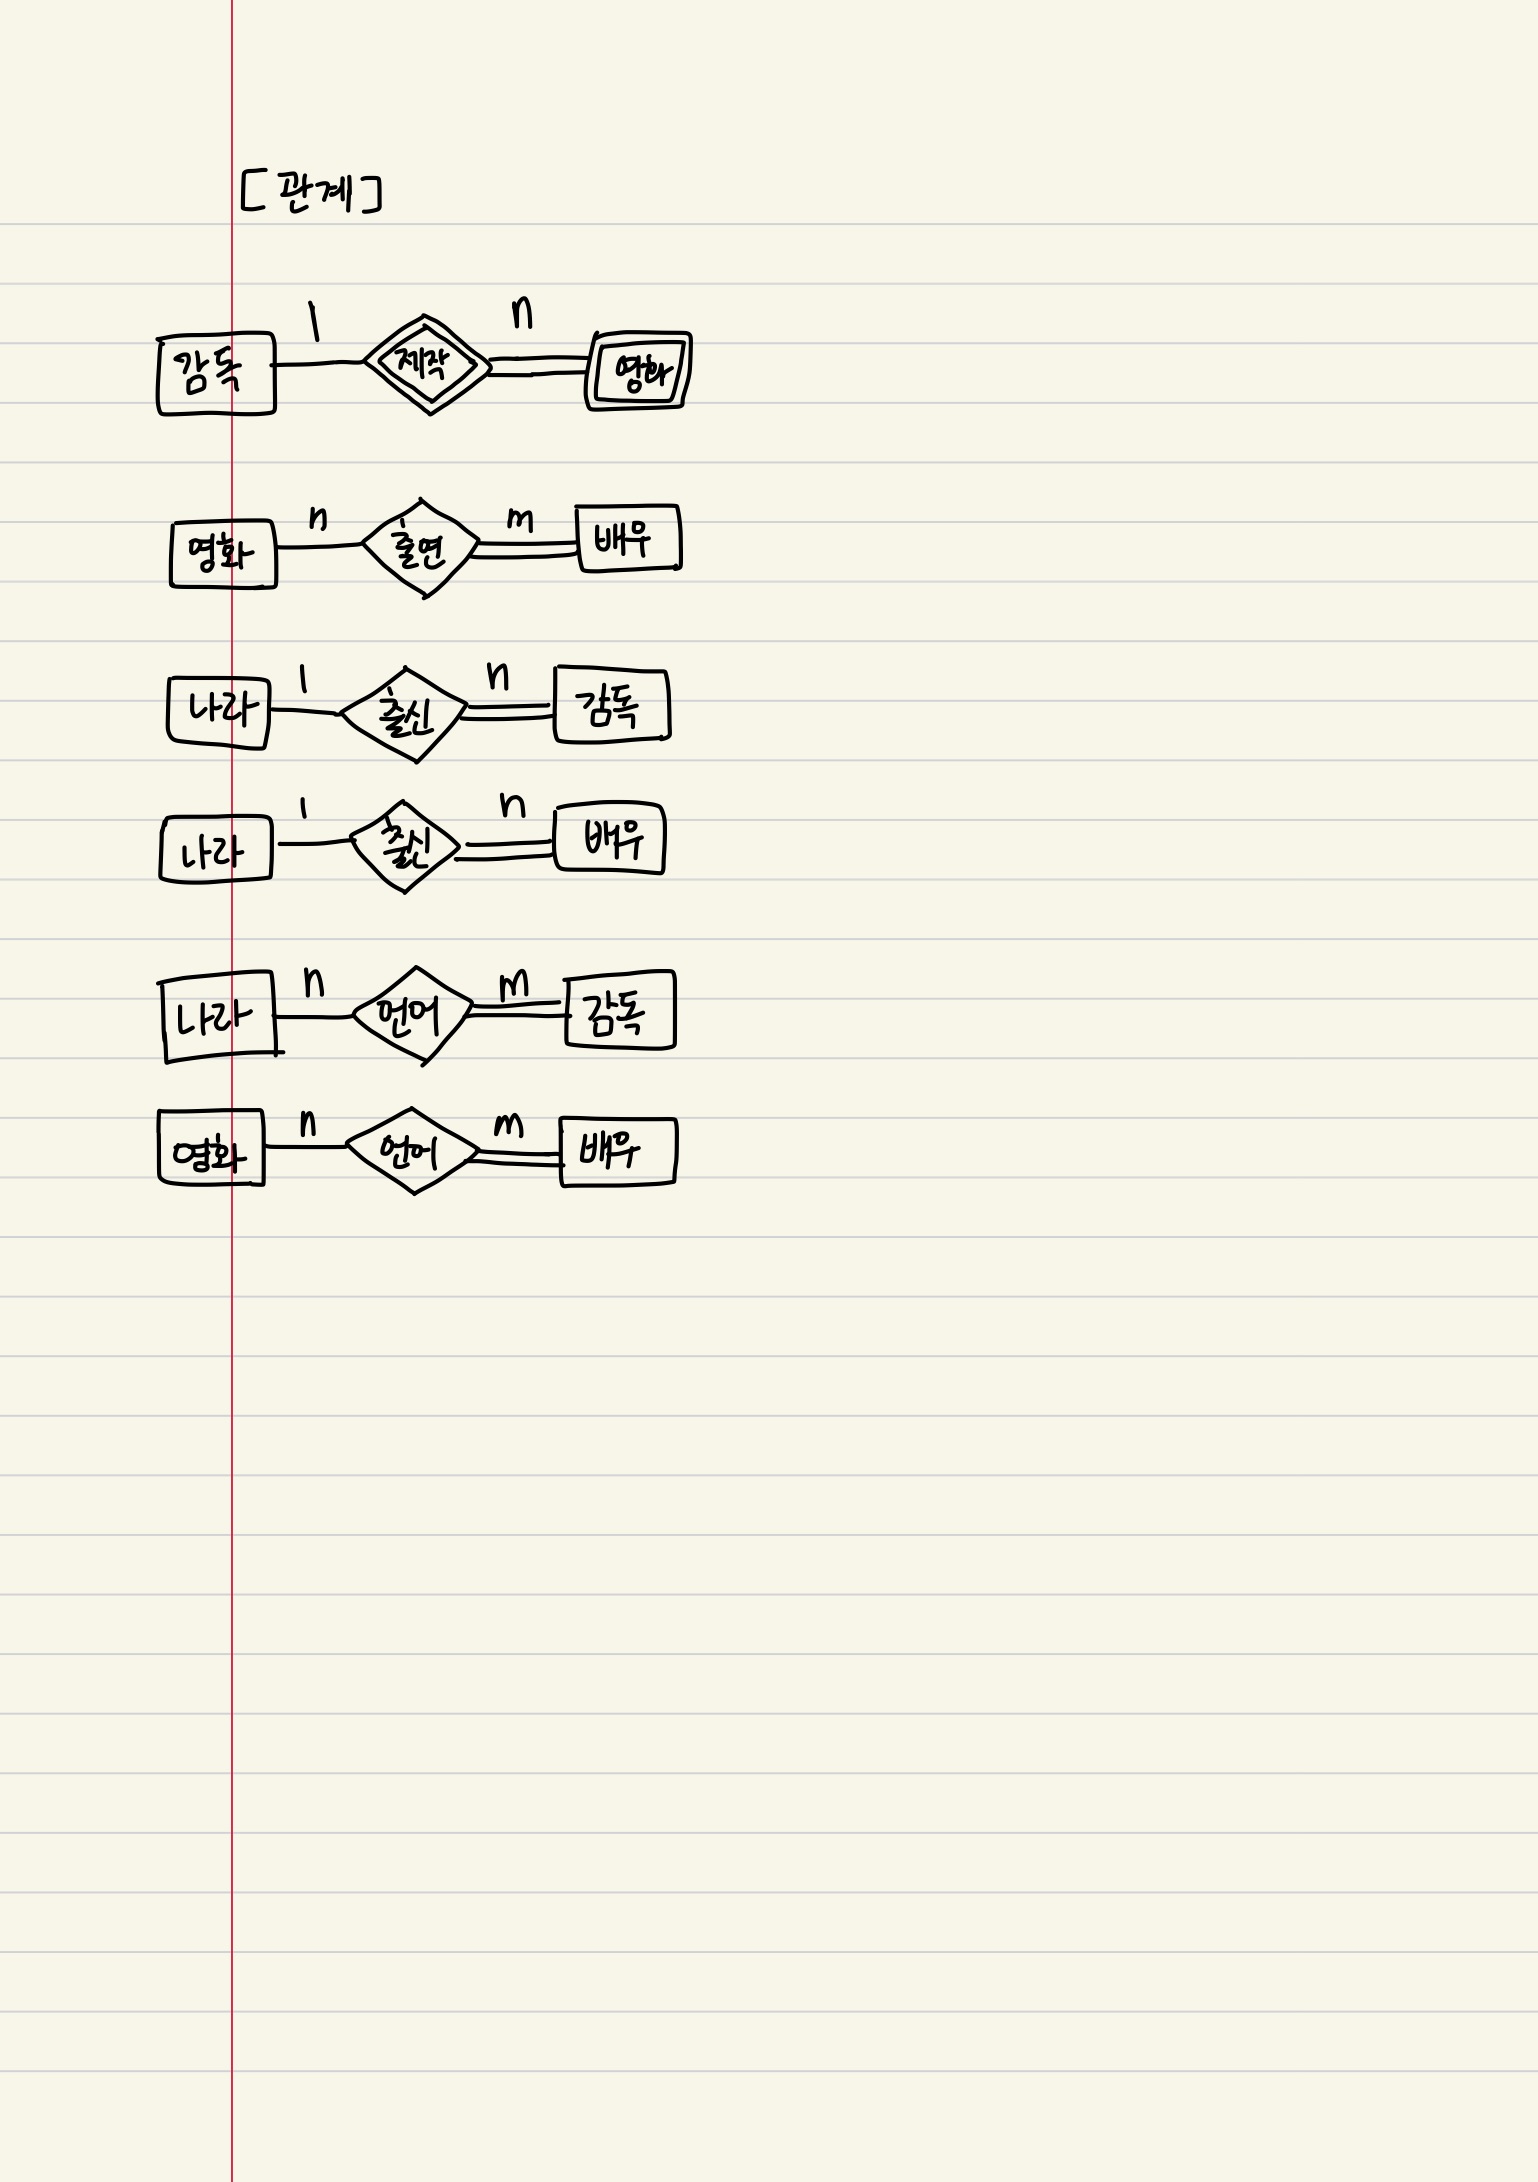 [관계]
감독 1 제작 n 영화
영화 n 출연 m 배우
나라 1 출신 n 감독
나라 1 출신 n 배우
나라 n 언어 m 감독
영화 n 언어 m 배우